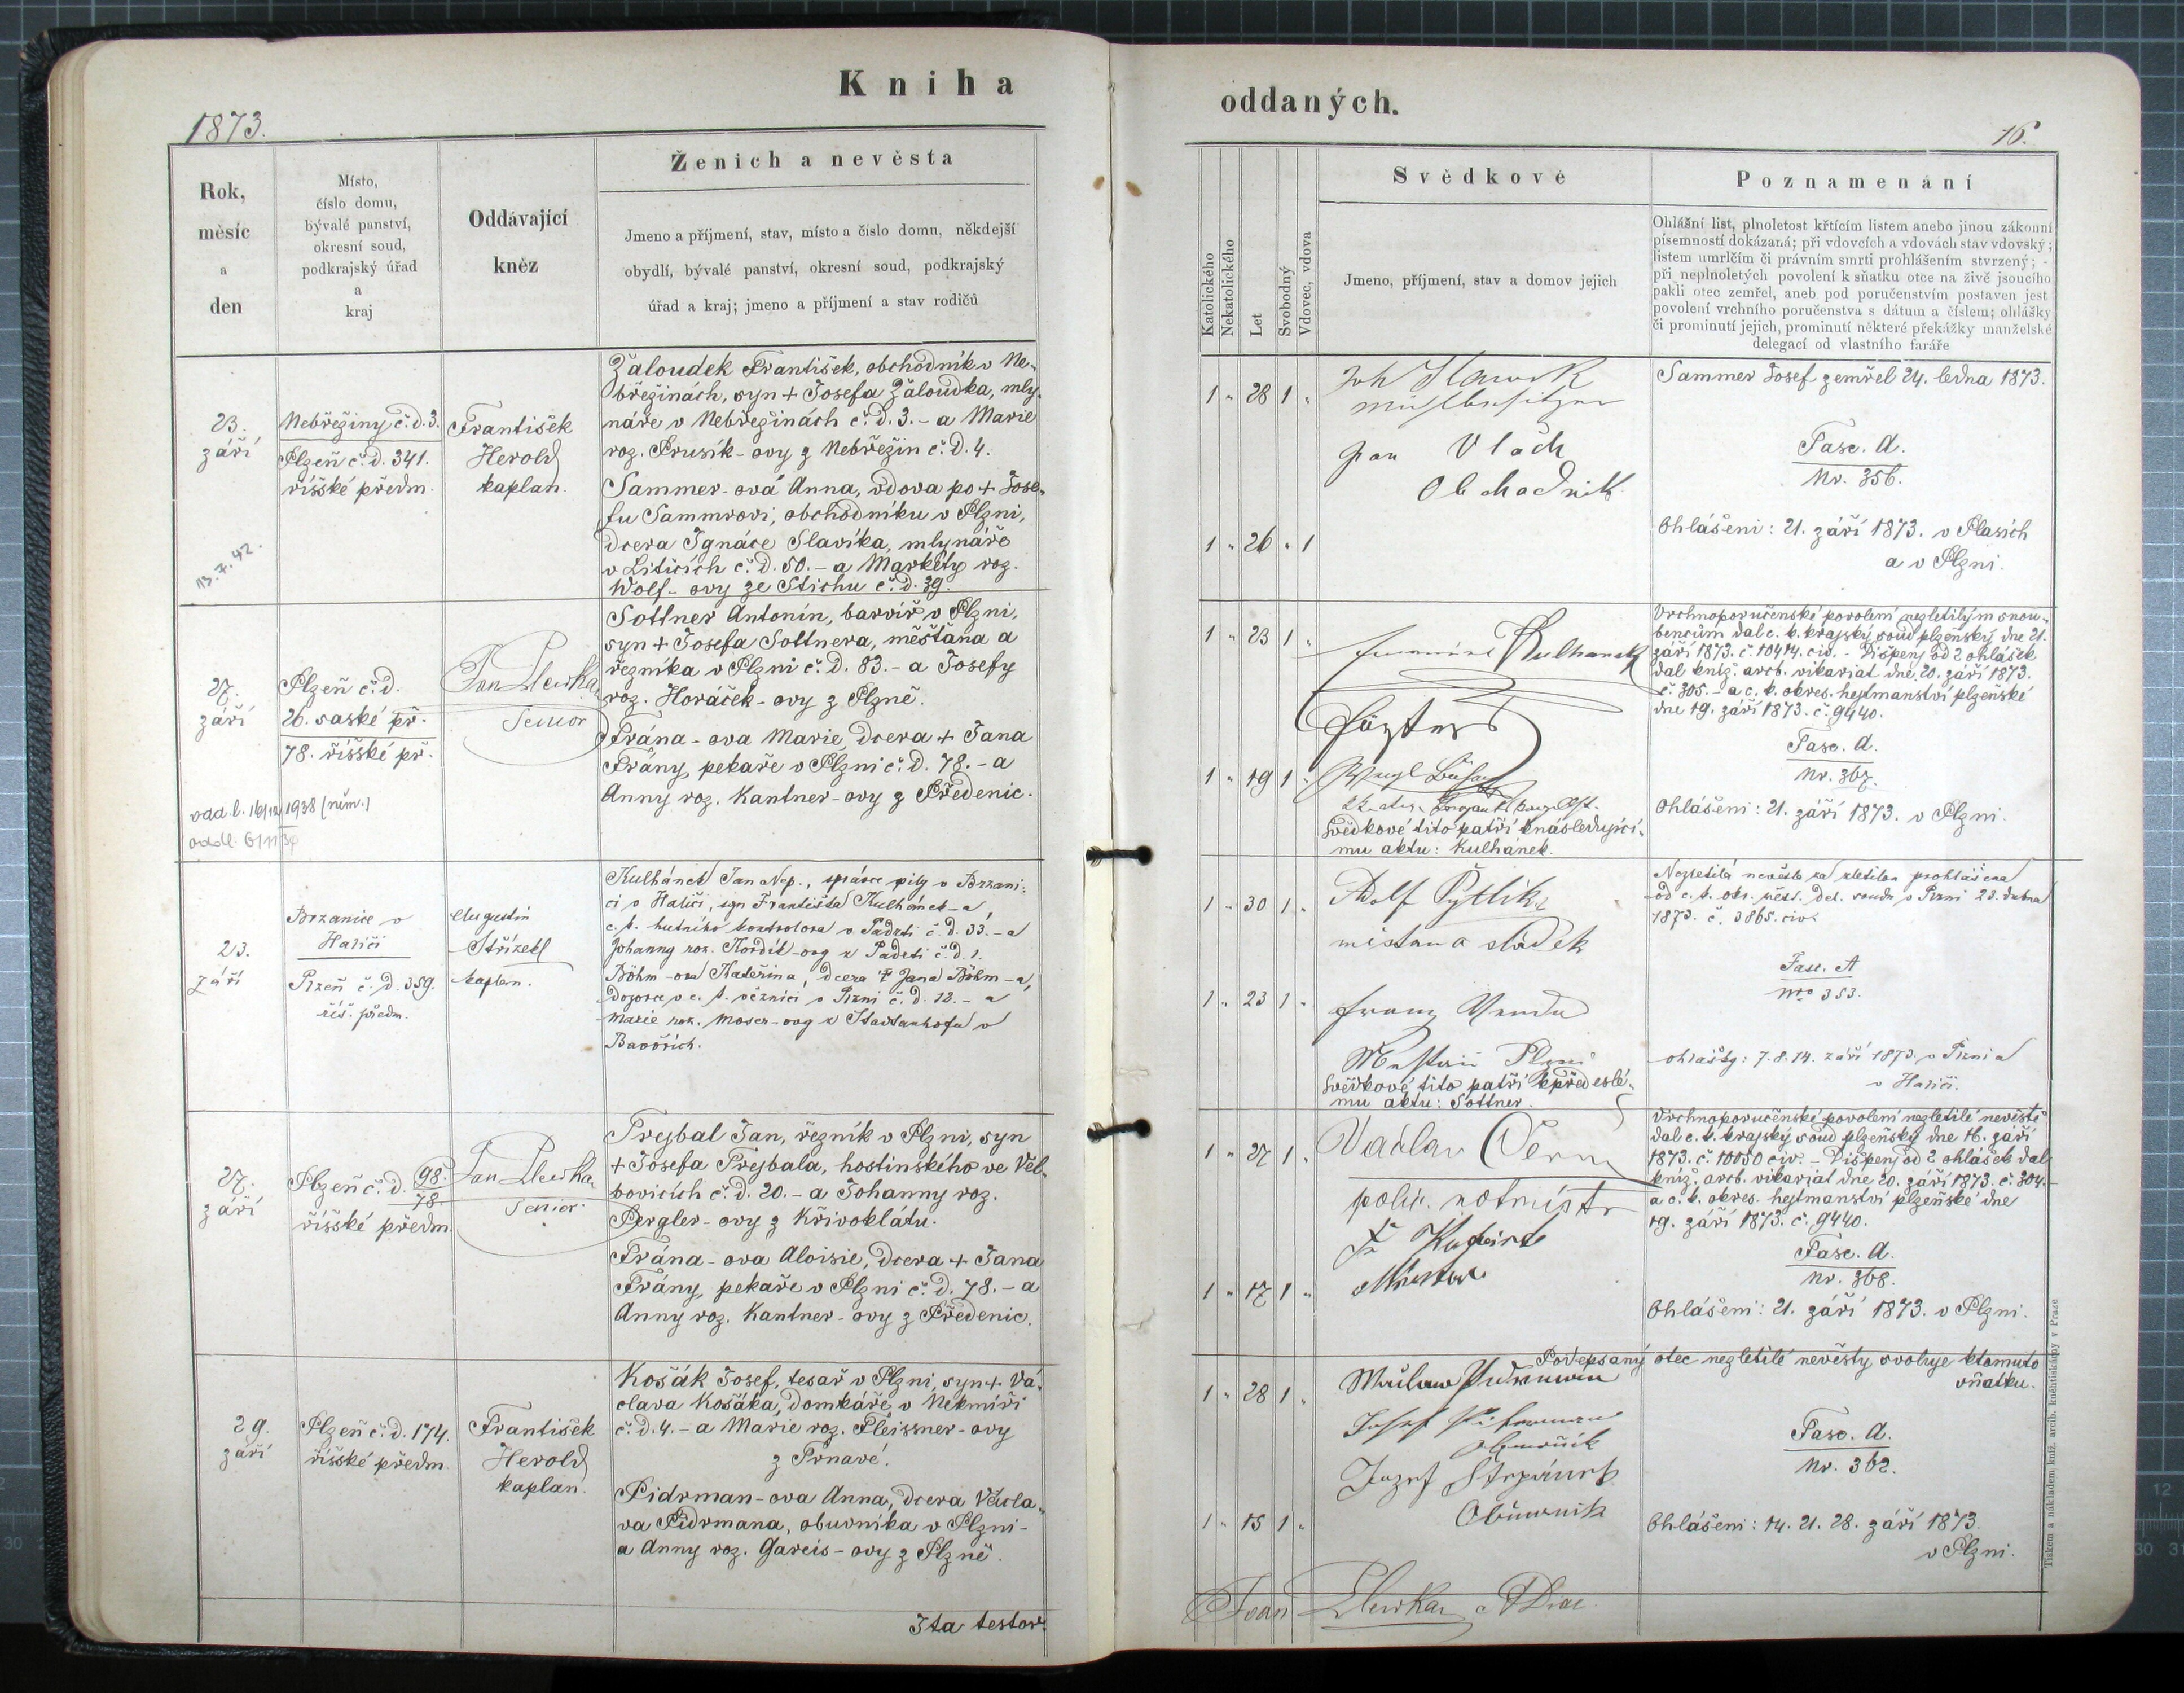 Kniha
1873.
Rok,
měsíc
a
den
Místo,
číslo domu,
bývalé panství,
okresní soud,
podkrajský úřad
a
kraj
Oddávající
kněz
Ženich a nevěsta
Jmeno a příjmení, stav, místo a číslo domu, někdejší
obydlí, bývalé panství, okresní soud, podkrajský
úřad a kraj; jmeno a příjmení a stav rodičů
23.
září
Nebřeziny č. d. 3.
Plzeň č. d. 341.
říšské předm.
František
Herold
kaplan.
Žaloudek František, obchodník v Ne-
břežinách, syn + Josefa Žaloudka, mly-
náře v Nebřezinách č. d. 3. - a Marie
roz. Prusík-ovy z Nebřežin č. d. 4.
Sammer-ová Anna, vdova po + Jose-
fu Sammrovi, obchodníku v Plzni,
dcera Ignáce Slavíka, mlynáře
v Liticích č. d. 50. - a Markéty roz.
Wolf-ovy ze Stichu č. d. 39.
13.7.42.
27.
září
Plzeň č. d.
26. saské př.
78. říšské př.
Jan Slewka
Senior
Sottner Antonín, barvíř v Plzni,
syn + Josefa Sottnera, měšťana a
řezníka v Plzni č. d. 83. - a Josefy
roz. Horáček-ovy z Plzně.
Frána-ova Marie, dcera + Jana
Frány, pekaře v Plzni č. d. 78. - a
Anny roz. Kantner-ovy z Předenic.
odd l. 16/12 1938 (něm.)
23.
září
Brzanice v
Haliči
Plzeň č. d. 359.
říš. předm.
Augustin
Střízek
kaplan.
Kulhánek Jan Nep., správce pily v Brzani-
ci v Haliči, syn Františka Kulhánek-a,
c. k. hutního kontrolora v Padrti č. d. 33. - a
Johanny roz. Kordík-ovy z Padrti č. d. 1.
Böhm-ova Kateřina, dcera + Jana Böhm-a,
dozorce v c. k. věznici v Plzni č. d. 12. - a
Marie roz. Moser-ovy z Stadtamhofu v
Bavořích.
27.
září
Plzeň č. d. 98.
78.
říšské předm.
Jan Slewka
Senior.
Trejbal Jan, řezník v Plzni, syn
+ Josefa Trejbala, hostinského ve Vel-
bovicích č. d. 20. - a Johanny roz.
Pergler-ovy z Křivoklátu.
Frána-ova Aloisie, dcera + Jana
Frány, pekaře v Plzni č. d. 78. - a
Anny roz. Kantner-ovy z Předenic.
29.
září
Plzeň č. d. 174.
říšské předm.
František
Herold
kaplan.
Košák Josef, tesař v Plzni, syn + Vá-
clava Košáka, domkáře v Nekmíři
č. d. 4. - a Marie roz. Fleissner-ovy
z Trnavé.
Pidrman-ova Anna, dcera Václa-
va Pidrmana, obuvníka v Plzni -
a Anny roz. Gareis-ovy z Plzně.
Ita testor.
oddaných.
16.
Katolického
Nekatolického
Let
Svobodný
Vdovec, vdova
Svědkové
Jmeno, příjmení, stav a domov jejich
Poznamenání
Ohlášní list, plnoletost křtícím listem anebo jinou zákonní
písemností dokázaná; při vdovcích a vdovách stav vdovský;
listem umrlčím či právním smrti prohlášením stvrzený; -
při neplnoletých povolení k sňatku otce na živě jsoucího
pakli otec zemřel, aneb pod poručenstvím postaven jest
povolení vrchního poručenstva s dátum a číslem; ohlášky
či prominutí jejich, prominutí některé překážky manželské
delegací od vlastního faráře
1 " 28 1 "
Joh Slawik
Mühlbesitzer
Jan Vlach
Obchodník
1 " 26 " 1
Sammer Josef zemřel 24. ledna 1873.
Fasc. A.
Nr. 356.
Ohlášeni: 21. září 1873. v Plasích
a v Plzni.
1 " 23 1 "
Kulhanek
Förster
1 " 19 1 "
Svědkové tito patří k následující-
mu aktu: Kulhánek.
Vrchnoporučenské povolení nezletilým snou-
bencům dal c. k. krajský soud plzeňský dne 21.
září 1873. č. 10414. civ. - Dišpens od 2 ohlášek
dal kníž. arcb. vikariát dne 20. září 1873.
č. 305. - a c. k. okres. hejtmanství plzeňské
dne 19. září 1873. č. 9440.
Fasc. A.
Nr. 367.
Ohlášeni: 21. září 1873. v Plzni.
1 " 30 1 "
Adolf Pytlik
mistan a sládek
1 " 23 1 "
Franz
Svědkové tito patří k předešlé-
mu aktu: Sottner.
Nezletilá nevěsta za zletilou prohlášena
od c. k. okr. měst. del. soudu v Plzni 23. dubna
1873. č. 3865. civ.
Fasc. A
Nro 353.
ohlášky: 7. 8. 14. září 1873. v Plzni a
v Haliči.
1 " 27 1 "
Vaclav Čern
polic.
1 " 17 1 "
Vrchnoporučenské povolení nezletilé nevěstě
dal c. k. krajský soud plzeňský dne 16. září
1873. č. 10050 civ. - Dišpens od 2 ohlášek dal
kníž. arcb. vikariát dne 20. září 1873. č. 304. -
a c. k. okres. hejtmanství plzeňské dne
19. září 1873. č. 9440.
Fasc. A.
Nr. 368.
Ohlášeni: 21. září 1873. v Plzni.
Podepsaný otec nezletilé nevěsty svoluje k tomuto
sňatku.
1 " 28 1 "
Josef
Jozef Štepánek
Obuwnik
1 " 15 1 "
Fasc. A.
Nr. 362.
Ohlášeni: 14. 21. 28. září 1873.
v Plzni.
Joan Slewka
Tiskem a nákladem kníž. arcib. knihtiskárny v Praze